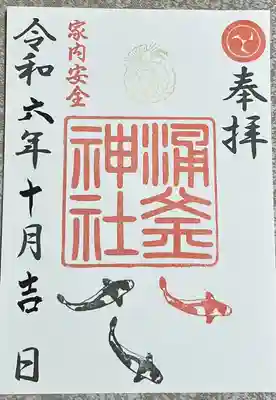 奉拝
涌釜
神社
家内安全
令和六年十月吉日